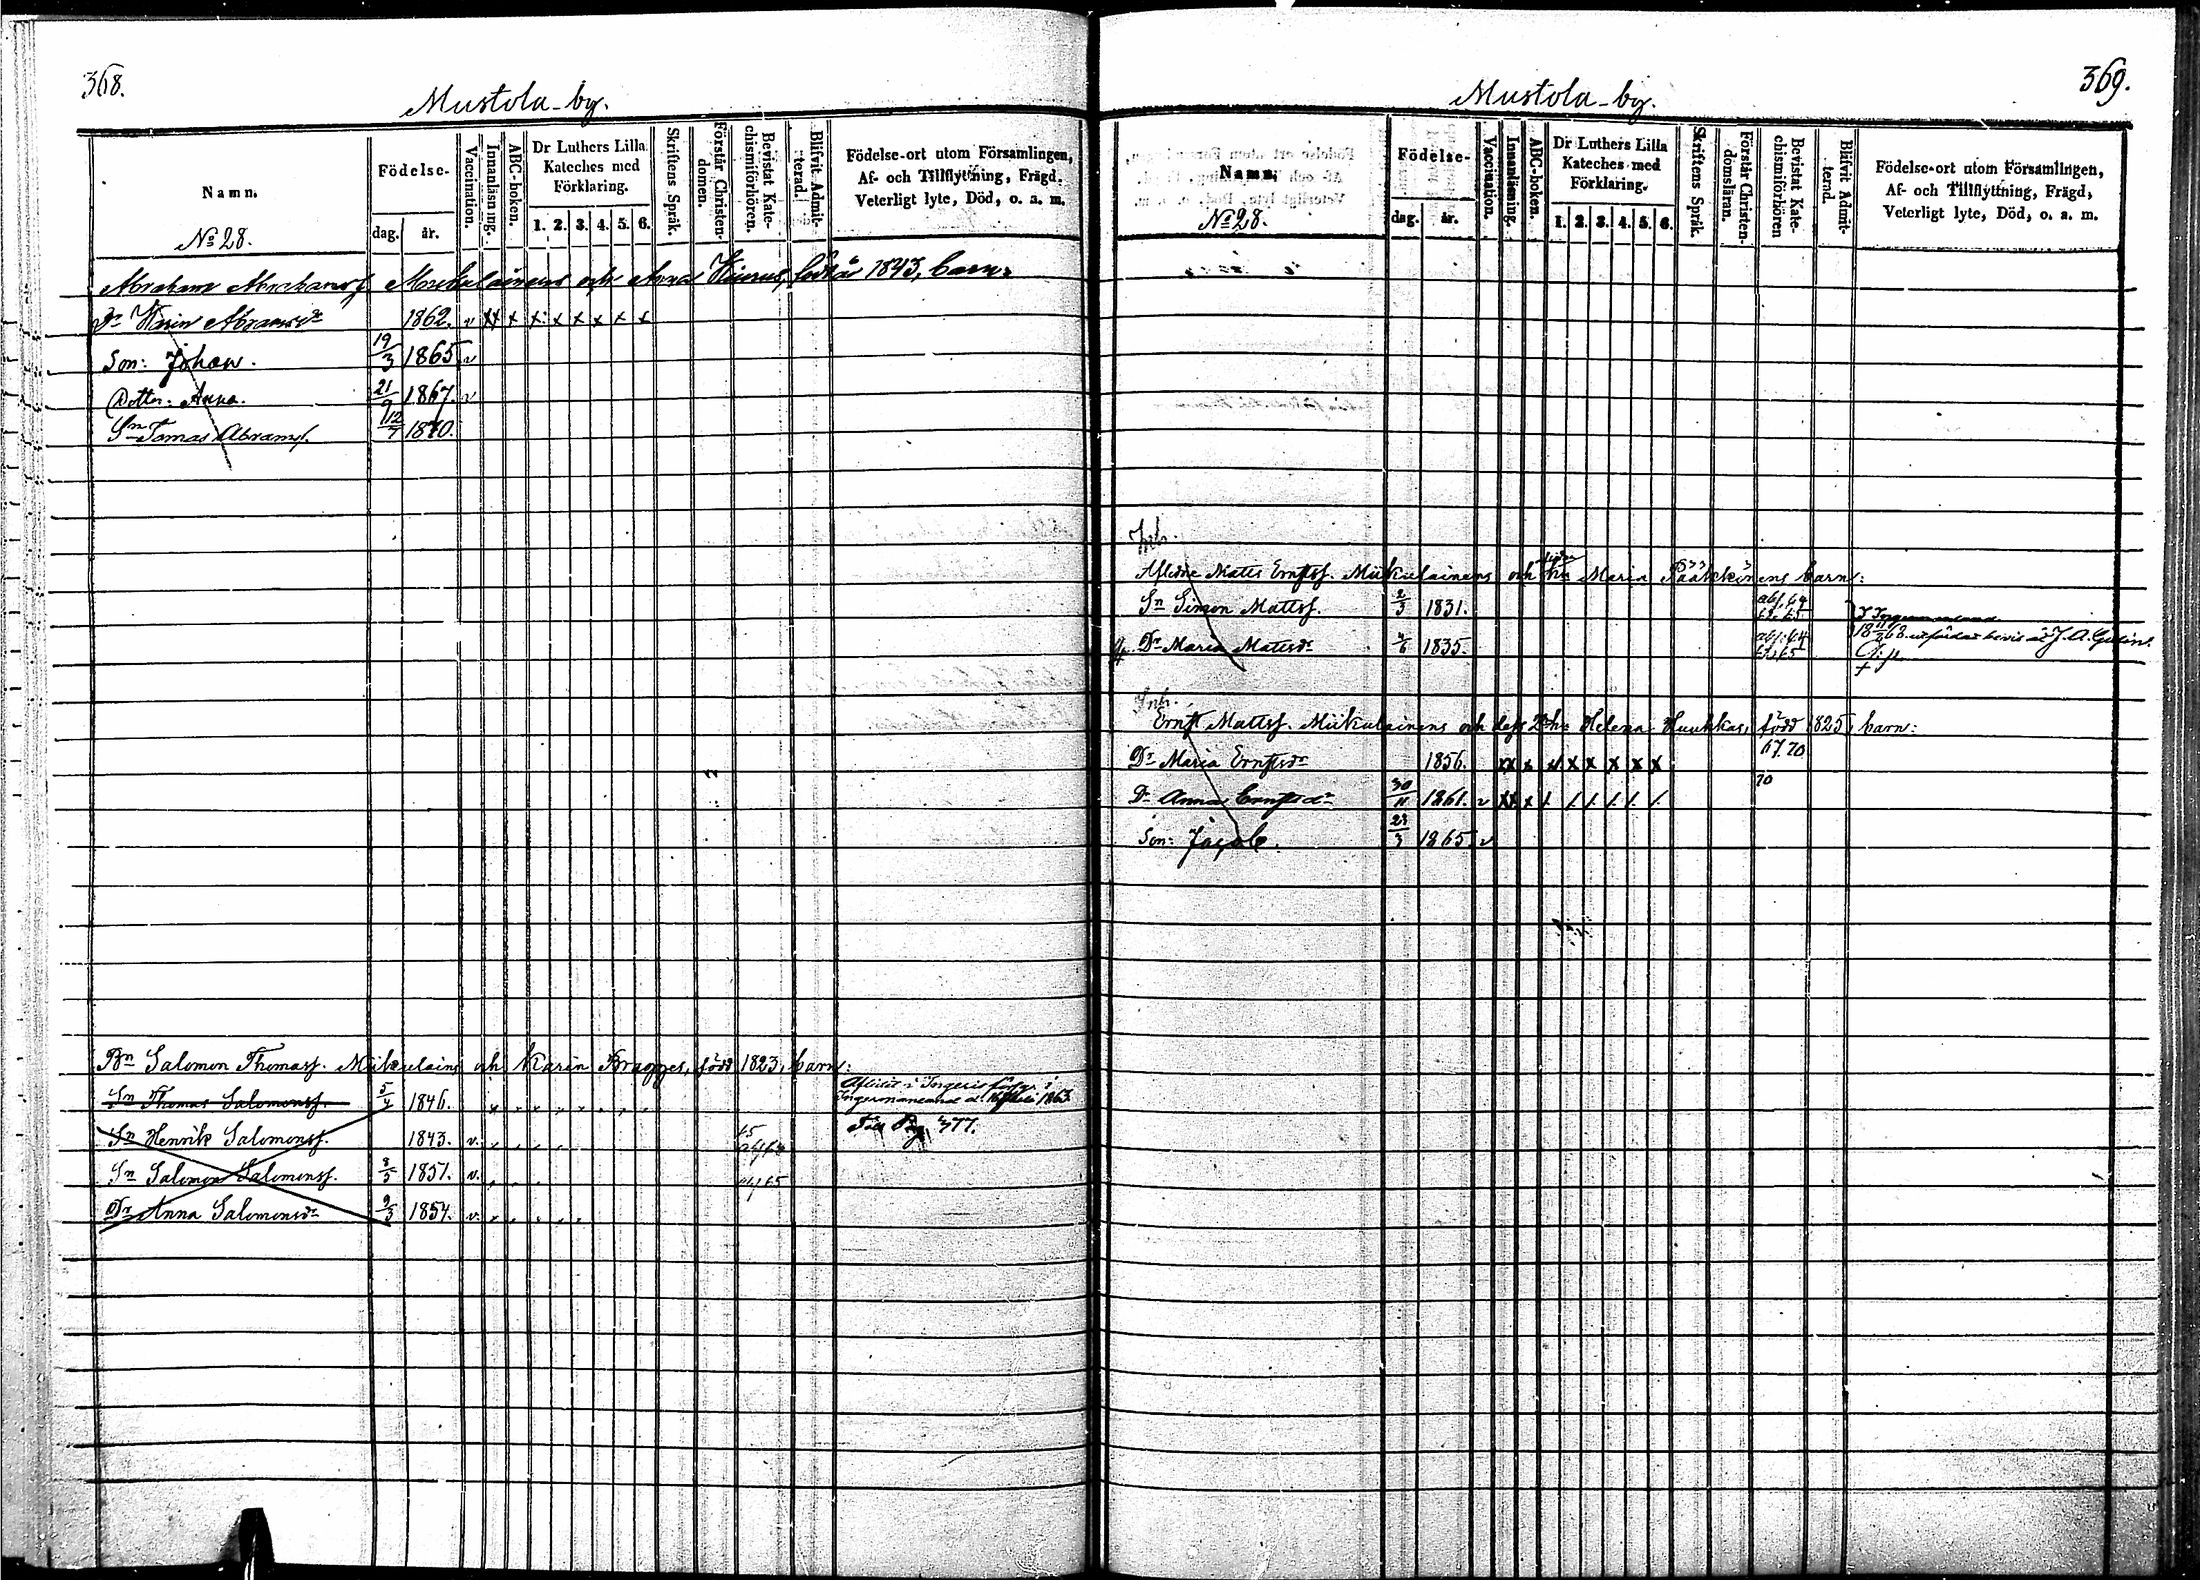 368.
Mustola-by.
Namn.
No 28.
Födelse-
dag.
år.
Vaccination.
Innanläsning.
ABC-boken.
Dr Luthers Lilla
Kateches med
Förklaring.
1. 2. 3. 4. 5. 6.
Skriftens Språk.
Förstår Christen-
domen.
Bevistat Kate-
chismiförhören.
Blifvit Admit-
terad.
Födelse-ort utom Församlingen,
Af- och Tillflyttning, Frägd.
Veterligt lyte, Död, o. a. m.
Abraham och Anna född år 1843, barn:
Dr Karin Abramsdr 1862. v xx x x x x x x x
Son: Johan. 19/3 1865 v
Dotter: Anna. 21/9 1867. v
Sn Tomas Abramsf. 12/7 1870.
Bn Salomon Thomasf. och Karin född 1823, barn:
Sn Thomas Salomonsf. 5/4 1846.
i 1863
Sn Henrik Salomonsf. 1843. v. 65 Pag. 377.
Sn Salomon Salomonsf. 8/5 1851. v. 65
Dr Anna Salomonsdr 9/3 1854. v.
369.
Mustola-by.
Namn.
No 28.
Födelse-
dag.
år.
Vaccination.
Innanläsning.
ABC-boken.
Dr Luthers Lilla
Kateches med
Förklaring.
1. 2. 3. 4. 5. 6.
Skriftens Språk.
Förstår Christen-
domsläran.
Bevistat Kate-
chismiförhören
Blifvit Admit-
ternd.
Födelse-ort utom Församlingen,
Af- och Tillflyttning, Frägd,
Veterligt lyte, Död, o. a. m.
Inh.
Aflidne Matts Ernstsf. Miikulainens och Maria Pääkkönens barn:
Sn Simon Mattsf. 2/3 1831. 64
Dr Maria Mattsdr 1835. 64
Inh.
Ernst Mattsf. Miikulainens och dess 2 h: Helena Huuhkas, född 1825, barn:
Dr Maria Ernstsdr 1856. xx x x x x x x x 67. 70
Dr Anna Ernstsdr 30/11 1861. v xx x 70
Son: Jacob. 23/3 1865 v